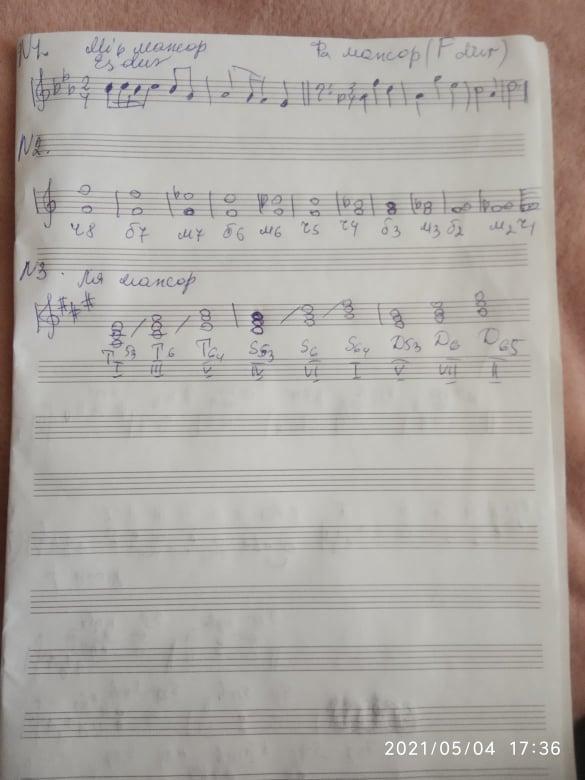 N1. Мі♭ мажор Фа мажор (F dur)
Es dur
2 4
N2.
ч8 б7 м7 б6 м6 ч5 ч4 б3 м3 б2 м2 ч1
N3. Ля мажор
T53 T6 T64 S53 S6 S64 D53 D6 D65
I III V IV VI I V VII II
2021/05/04 17:36